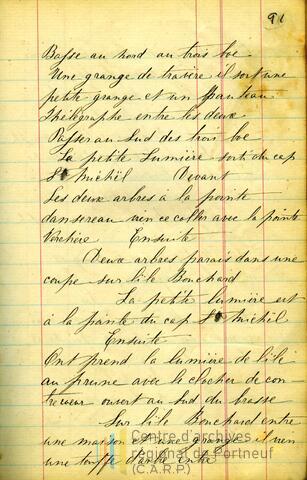 91
Basse au nord au trois boe
Une grange de traviere il sort une
petite grange et un pauteau
Thelegraphe entre les deux
Passer au Sud des trois boe
La petite Lumière sorti du cap
St Michël Devant
Les deux arbres à la pointe
dansereau vien ce coller avec la pointe
Verchère Ensuite
Deux arbres parais dans une
coupe sur l'ile Bouchard
La petite lumière est
à la pointe du cap St Michël
Ensuite
Ont prend la lumière de l'ile
au prune avec le clocher de con
trecœur ouvert au sud du brasse
Sur l'ile Bouchard entre
une maison et une grange il vien
une touffe d'arbre Entre
Centre d'archives
régional de Portneuf
(C.A.R.P.)